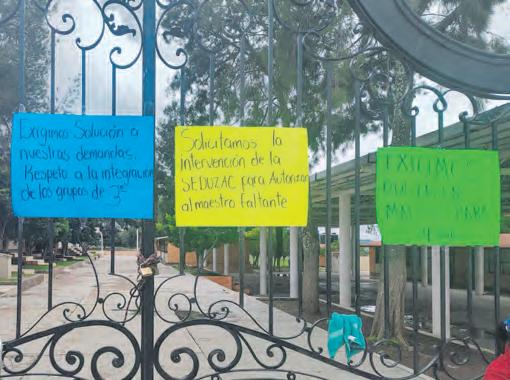 Exigimos Solución a
nuestras demandas.
Respeto a la integración
de los grupos de 3°
Solicitamos la
intervención de la
SEDUZAC para Autorizar
al maestro Faltante
EXIGIMOS